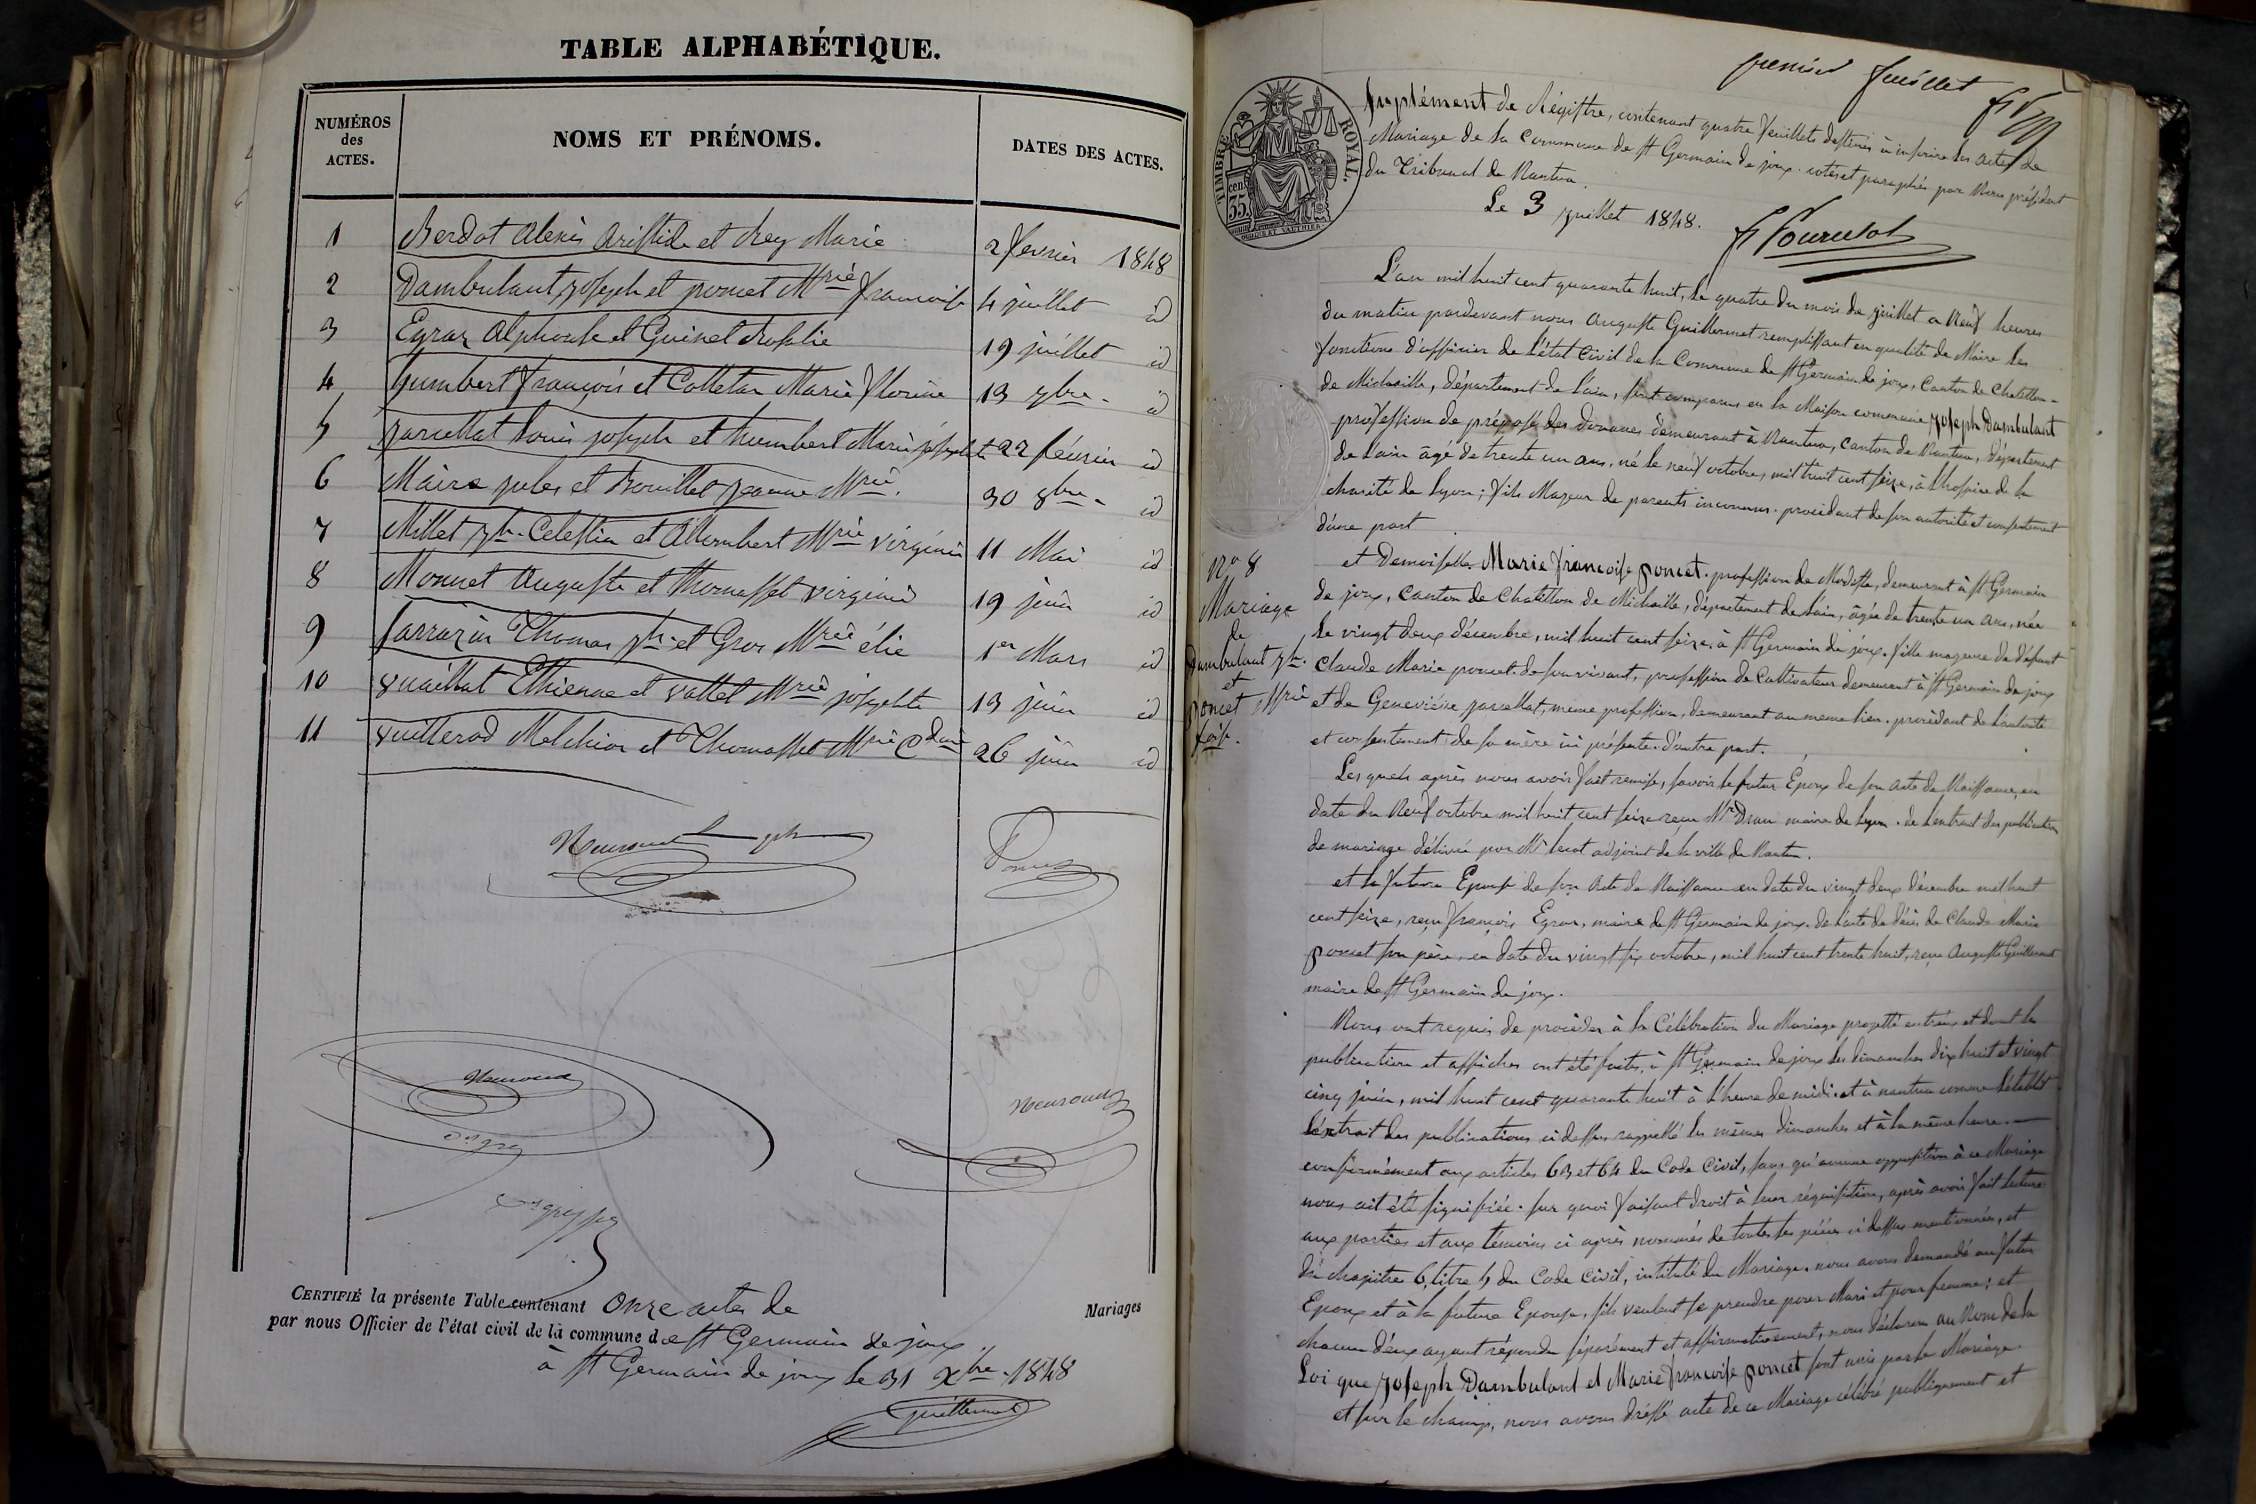 TABLE ALPHABÉTIQUE.
NUMÉROS des ACTES.
NOMS ET PRÉNOMS.
DATES DES ACTES.
1 Berdot Alexis Aristide et Rey Marie 2 fevrier 1848
2 Dambulant joseph et poncet Mrie francoise 4 juillet id
3 Egraz Alphonse et Guinet Rosalie 19 juillet id
4 humbert françois et Colletaz Marie florine 13 7bre id
5 jarcellat Louis joseph et humbert Marie josephte 22 février id
6 Maire jules et Bouillet jeanne Mrie. 30 8bre id
7 Millet jh. Celestin et Allombert Mrie virginie 11 Mai id
8 Monnet Auguste et thomasset virginie 19 juin id
9 Sarrazin Thomas jh et Gros Mrie élie 1er Mars id
10 vuaillat Ethienne et vallet Mrie josephte 13 juin id
11 vuillerod Melchior et Thomasset Mrie Cdine 26 juin id
CERTIFIÉ la présente Table contenant onze actes de Mariages
par nous Officier de l'état civil de la commune de St Germain de joux
à St Germain de joux le 31 Xbre 1848
Guillermet
premier feuillet
TIMBRE ROYAL.
35 cent
Suplément de Régistre, contenant quatre feuillets destinés à inscrire les actes de
Mariage de la Commune de St Germain de joux. cotés et paraphés par Nous président
du Tribunal de Nantua.
Le 3 juillet 1848.
L'an mil huit cent quarante huit, le quatre du mois de juillet a neuf heures
du matin pardevant nous Auguste Guillermet remplissant en qualité de Maire les
fonctions d'officier de l'état Civil de la Commune de St Germain de joux, Canton de Chatillon
de Michaille, département de l'ain, sont comparus en la Maison commune joseph Dambulant
profession de préposé des douanes demeurant à Nantua, Canton de Nantua, département
de l'ain âgé de trente un ans, né le neuf octobre, mil huit cent seize, à l'hospice de la
charité de Lyon; fils Majeur de parents inconnus. procédant de son autorité et consentement
d'une part
No 8
Mariage
de
Dambulant jh.
et
poncet Mrie
fçoise.
et Demoiselle Marie francoise poncet. profession de Modiste, demeurant à St Germain
de joux, Canton de Chatillon de Michaille, département de l'ain, âgée de trente un ans, née
le vingt deux décembre, mil huit cent seize, à St Germain de joux. fille majeure de défunt
Claude Marie poncet. de son vivant, profession de Cultivateur demeurant à St Germain de joux
et de Geneviève jarcellat, meme profession, demeurant au meme lieu. procédant de l'autorité
et consentement de sa mère ici présente. d'autre part.
Les quels après nous avoir fait remise, savoir le futur Époux de son acte de Naissance, en
date du Neuf octobre mil huit cent seize reçu Mr maire de Lyon. de l'extrait des publications
de mariage délivré par Mr adjoint de la ville de Nantua.
et la future Epouse de son Acte de Naissance en date du vingt deux décembre mil huit
cent seize, reçu françois Egraz, maire de St Germain de joux. de l'acte de décès de Claude Marie
poncet son père, en date du vingt six octobre, mil huit cent trente huit, reçu Auguste Guillermet
maire de St Germain de joux.
Nous ont requis de procéder à la Célébration du Mariage projetté entr'eux et dont les
publications et affiches ont été faites, à St Germain de joux les dimanches dix huit et vingt
cinq juin, mil huit cent quarante huit à l'heure de midi. et à nantua comme l'établit
l'extrait des publications ci dessus rappellé les mêmes dimanches et à la même heure.
conformément aux articles 63 et 64 du Code Civil, sans qu'aucune opposition à ce Mariage
nous ait été signifiée. sur quoi faisant droit à leur réquisition, après avoir fait lecture
aux parties et aux témoins ci après nommés de toutes les pièces ci dessus mentionnées, et
du chapitre 6, titre 5 du Code Civil, intitulé du Mariage, nous avons demandé au futur
Epoux et à la future Epouse, s'ils veulent se prendre pour Mari et pour femme; et
chacun d'eux ayant répondu séparément et affirmativement, nous déclarons au Nom de la
Loi que joseph Dambulant et Marie francoise poncet sont unis par le Mariage
et sur le champ, nous avons dréssé acte de ce Mariage célébré publiquement et